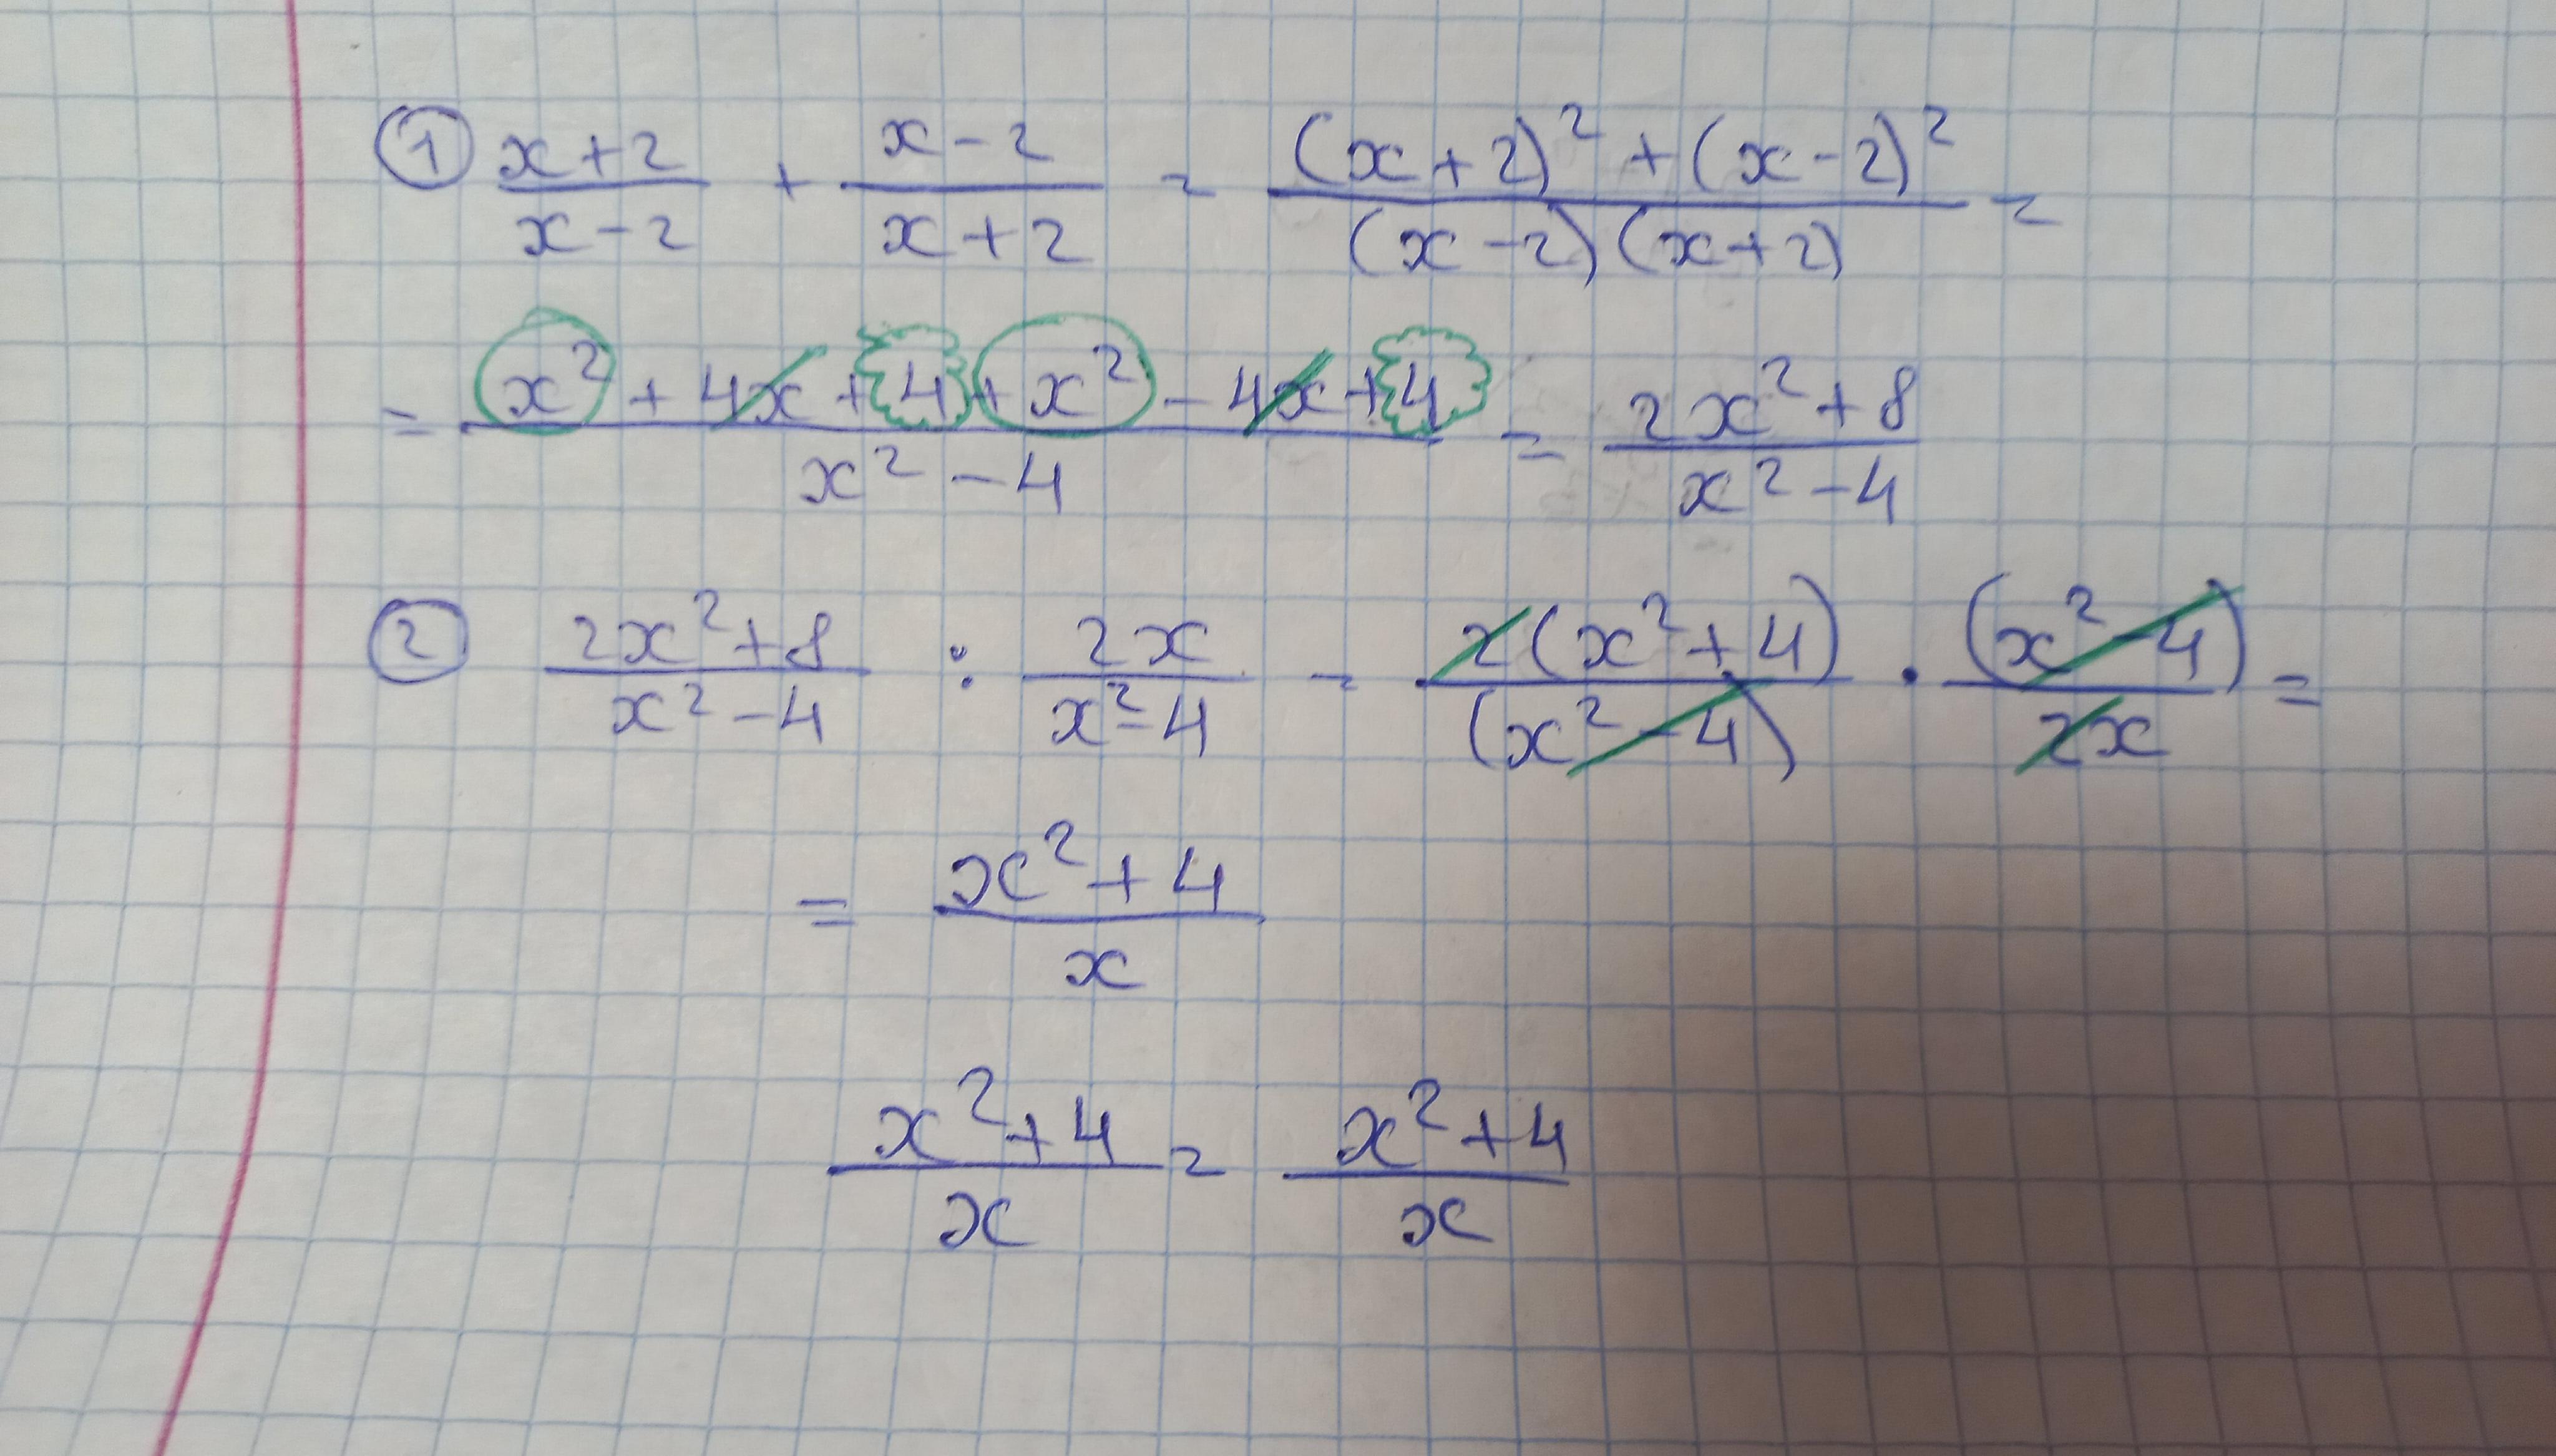 ① (x+2)/(x-2) + (x-2)/(x+2) = ((x+2)² + (x-2)²)/((x-2)(x+2)) =
= (x² + 4x + 4 + x² - 4x + 4)/(x² - 4) = (2x² + 8)/(x² - 4)
② (2x² + 8)/(x² - 4) : 2x/(x² - 4) = (2(x² + 4))/((x² - 4)) · ((x² - 4))/(2x) =
= (x² + 4)/x
(x² + 4)/x = (x² + 4)/x